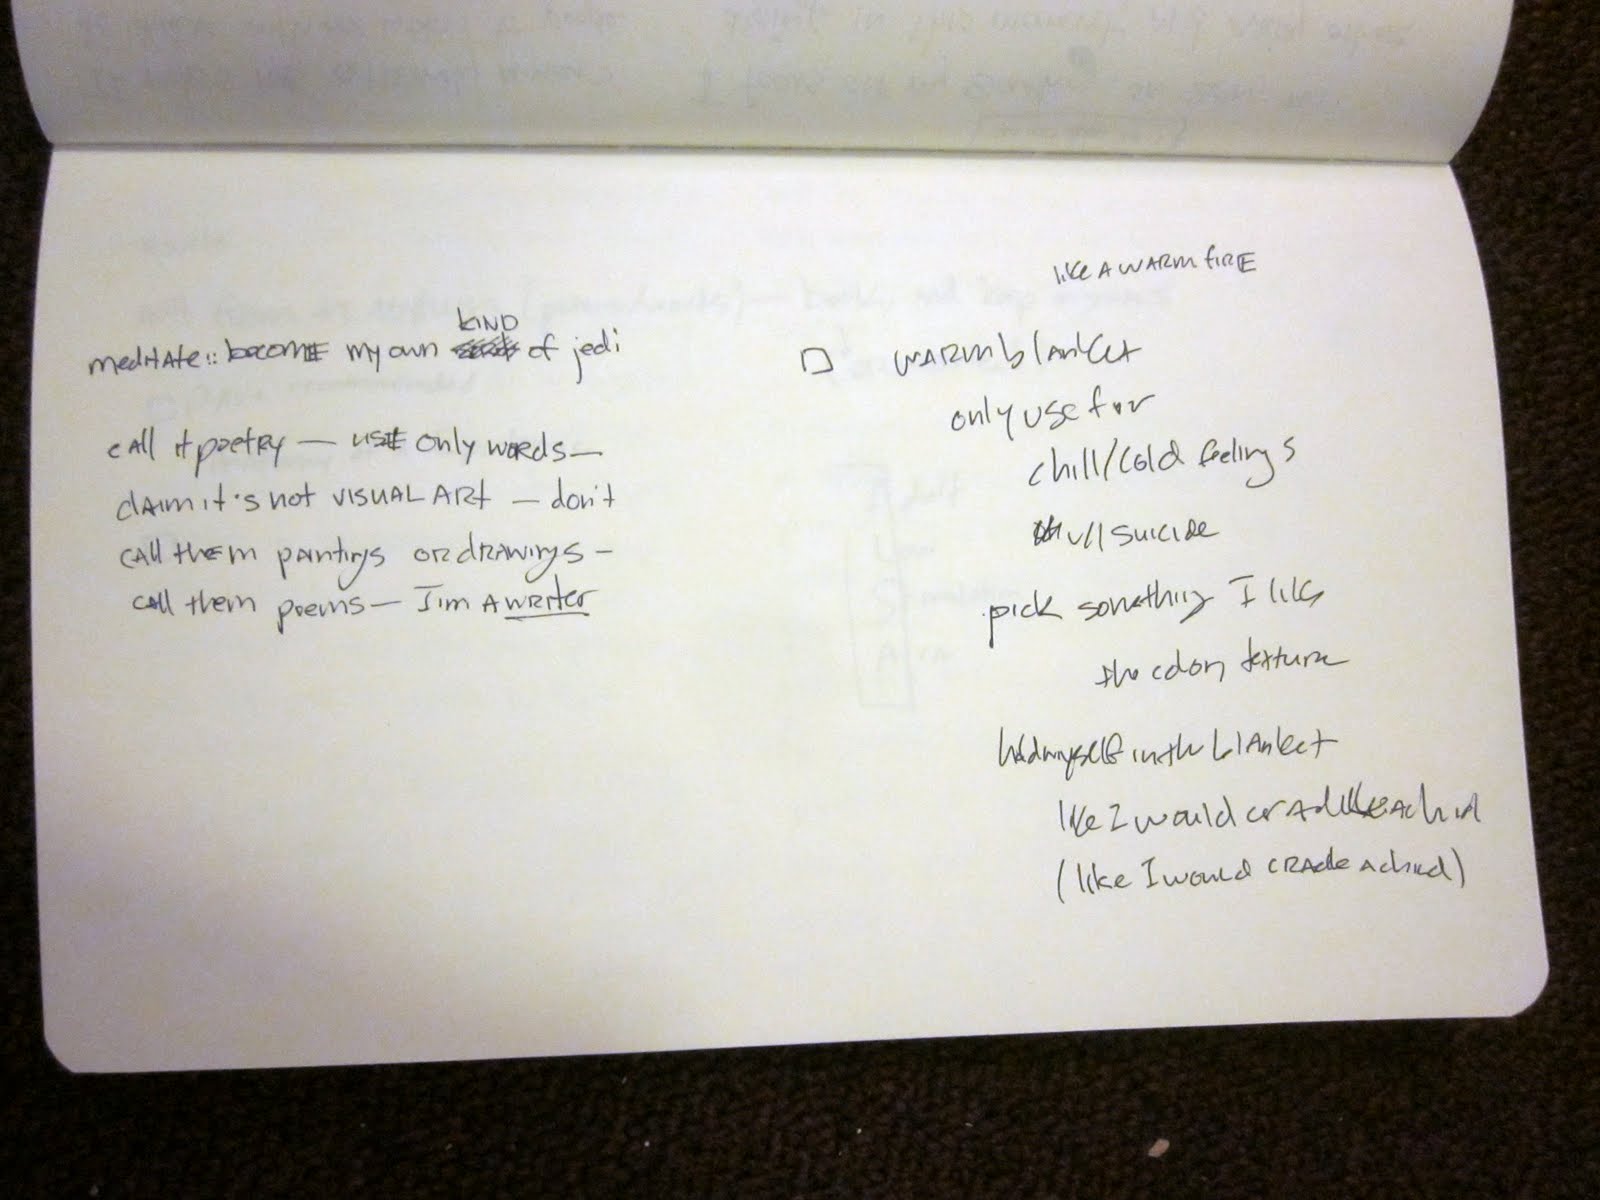 KIND
meditate:: become my own of jedi
call it poetry — use only words —
claim it's not VISUAL ART — don't
call them paintings or drawings —
call them poems — I'm a writer
like a warm fire
warm blanket
only use for
chill/cold feelings
suicide
pick something I like
the color, texture
hold myself in the blanket
like I would cradle a child
(like I would cradle a child)